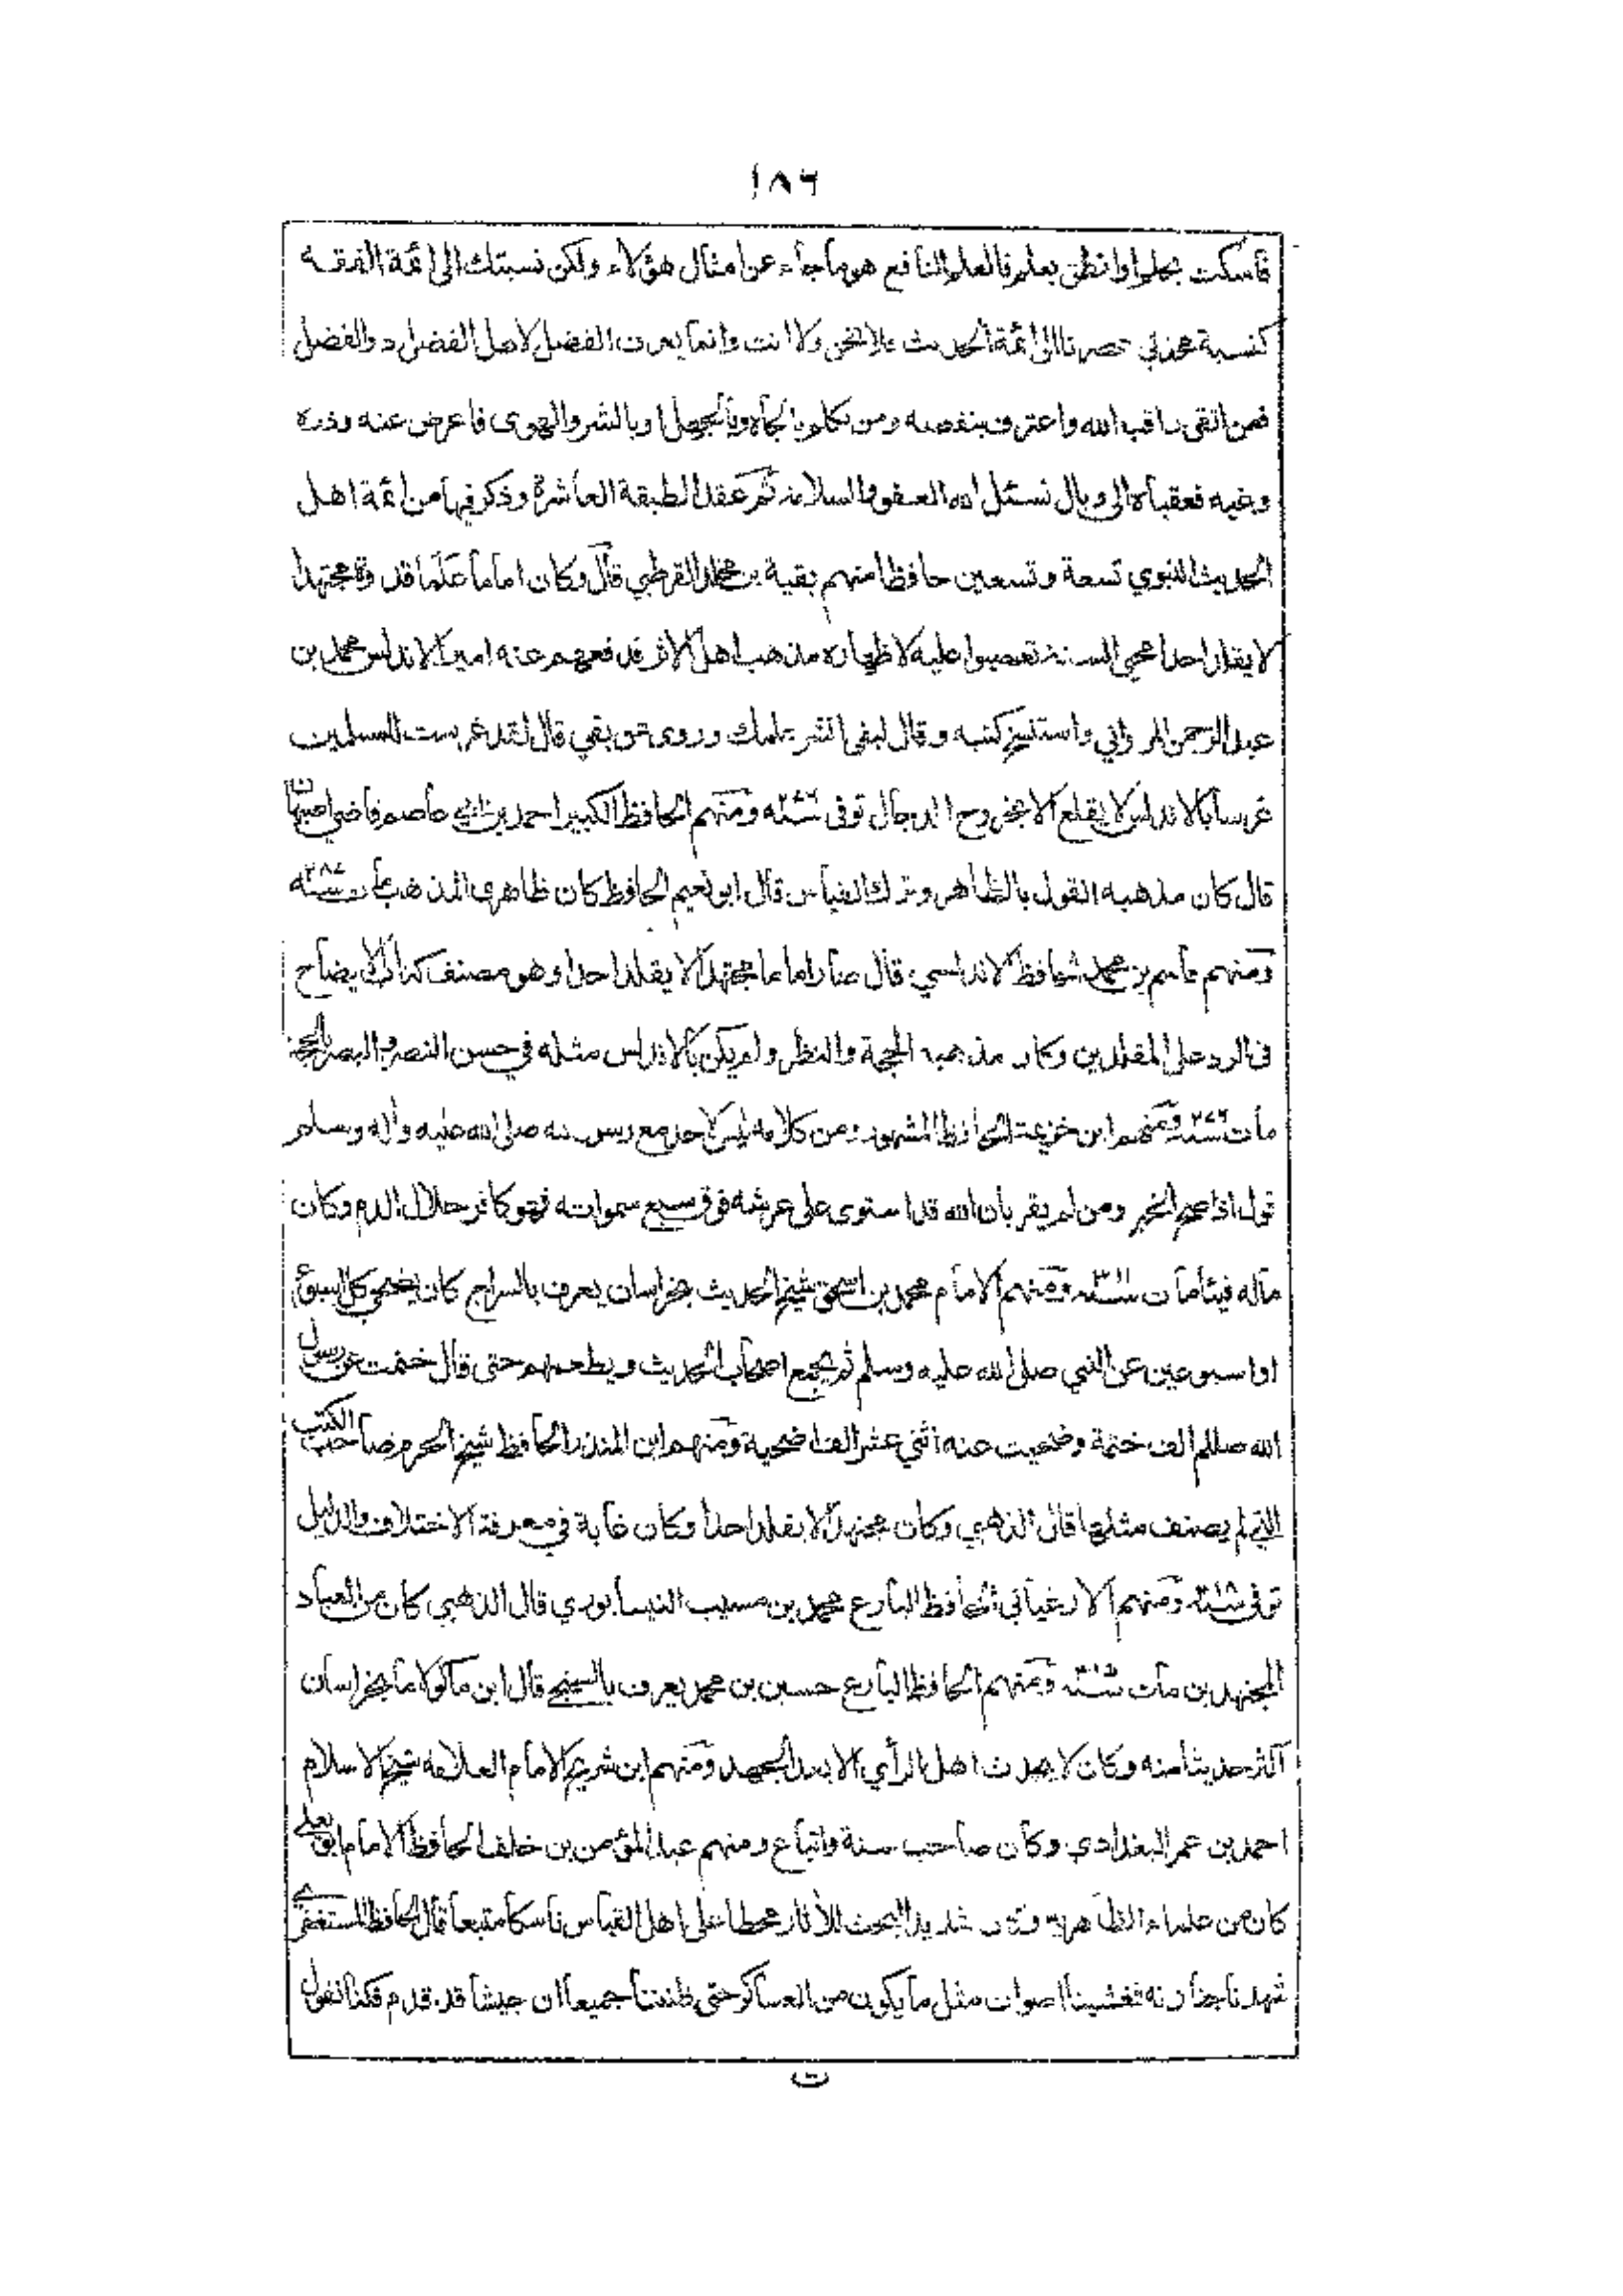 ١٨٦
فاسكت بحلم او انطق بعلم فالعلم النافع هو ما جاء عن امثال هؤلاء ولكن نسبتك الى ائمة الفقه
كنسبة محدثي عصرنا الى ائمة الحديث فلا نحن ولا انت وانما يعرف الفضل لاهل الفضل ذو الفضل
فمن اتقى راقب الله واعترف بنقصه ومن تكلم بالجاه وبالجهل او بالشر والهوى فاعرض عنه وذره
وغيه فعقباه الى وبال نسئل الله العفو والسلامة ثم عقد الطبقة العاشرة وذكر فيها من ائمة اهل
الحديث النبوي تسعة وتسعين حافظا منهم بقية بن مخلد القرطبي قال وكان اماما علما قدوة مجتهدا
لا يقلد احدا محيي السنة تعصبوا عليه لاظهاره مذهب اهل الاثر فدفعهم عنه امير الاندلس محمد بن
عبد الرحمن المرواني واستنسخ كتبه وقال لبقي انشر علمك وروى عن بقي قال لقد غرست للمسلمين
غرسا بالاندلس لا يقلع الا بخروح الدجال توفى ٢٧٦ ومنهم الحافظ الكبير احمد بن ابي عاصم قاضي اصبهان
قال كان مذهبه القول بالظاهر وترك القياس قال ابو نعيم الحافظ كان ظاهرى المذهب مات ٢٨٧
ومنهم قاسم بن محمد الحافظ الاندلسي قال صار اماما مجتهدا لا يقلد احدا وهو مصنف كتاب الايضاح
فى الرد على المقلدين وكان مذهبه الحجة والنظر ولم يكن بالاندلس مثله في حسن النظر والبصر بالحجة
مات ٢٧٦ ومنهم ابن خزيمة الحافظ المشهور ومن كلامه ليس لاحد مع رسول الله صلى الله عليه واله وسلم
قول اذا صح الخبر ومن لم يقر بان الله قد استوى على عرشه فوق سبع سمواته فهو كافر حلال الدم وكان
ماله فيئا مات ٣١١ ومنهم الامام محمد بن اسحق شيخ الحديث بخراسان يعرف بالسراج كان يضحي كل اسبوع
او اسبوعين عن النبي صلى الله عليه وسلم ثم يجمع اصحاب الحديث ويطعمهم حتى قال ختمت عن رسول
الله صللم الف ختمة وضحيت عنه اثني عشر الف اضحية ومنهم ابن المنذر الحافظ شيخ الحرم صاحب الكتب
التي لم يصنف مثلها قال الذهبي وكان مجتهدا لا يقلد احدا وكان غاية في معرفة الاختلاف والدليل
توفى ومنهم الارغياني الحافظ البارع محمد بن مسيب النيسابوري قال الذهبي كان من العباد
المجتهدين مات ومنهم الحافظ البارع حسين بن محمد يعرف بالسنجي قال ابن ماكولا ما بخراسان
اكثر حديثا منه وكان لا يحدث اهل الرأي الا بعد الجهد ومنهم ابن شريح الامام العلامة شيخ الاسلام
احمد بن عمر البغدادي وكان صاحب سنة واتباع ومنهم عبد المؤمن بن خلف الحافظ الامام ابو يعلى
كان من علماء الظاهرية وكان شديد البحث للآثار محطا على اهل القياس ناسكا متبعا قال الحافظ المستغفري
شهدنا جنازته فغشينا اصوات مثل ما يكون من العساكر حتى ظننا جميعا ان جيشا قد قدم فكنا نقول
ت